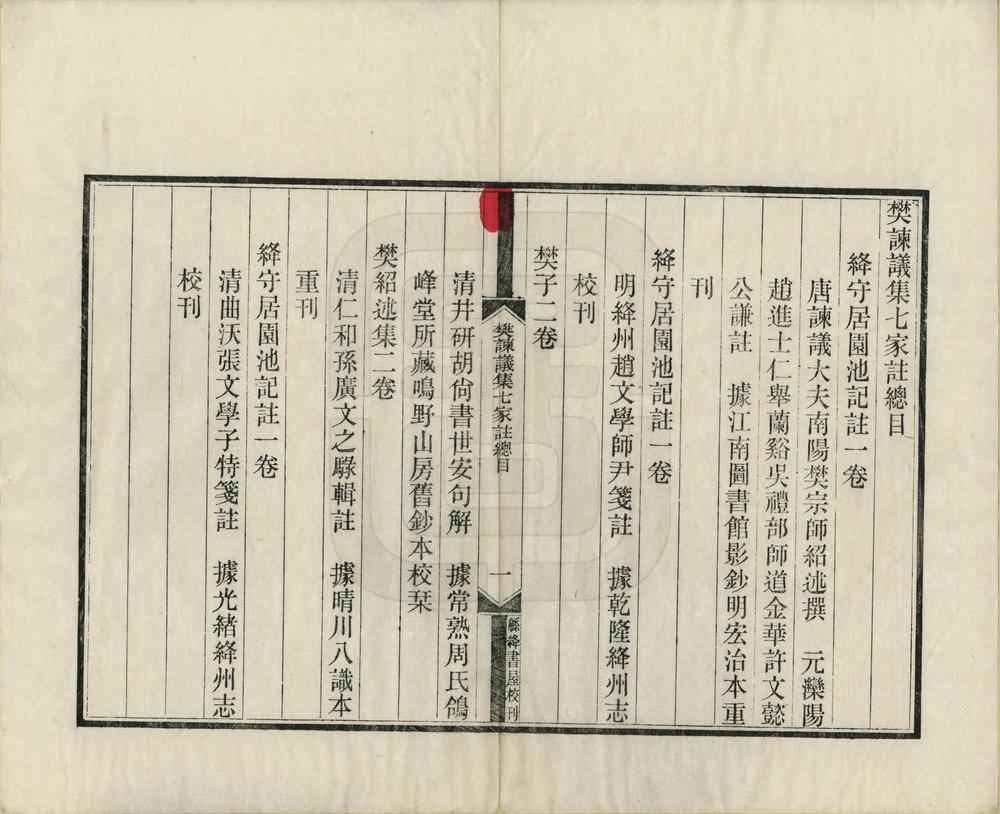 樊諫議集七家註總目
絳守居園池記註一卷
唐諫議大夫南陽樊宗師紹述撰　元灤陽
趙進士仁舉蘭谿吳禮部師道金華許文懿
公謙註　據江南圖書館影鈔明宏治本重
刊
絳守居園池記註一卷
明絳州趙文學師尹箋註　據乾隆絳州志
校刊
樊子二卷
樊諫議集七家註總目
一
緜絳書屋校刊
清井研胡尙書世安句解　據常熟周氏鴿
峰堂所藏鳴野山房舊鈔本校栞
樊紹述集二卷
清仁和孫廣文之騄輯註　據晴川八識本
重刊
絳守居園池記註一卷
清曲沃張文學子特箋註　據光緒絳州志
校刊